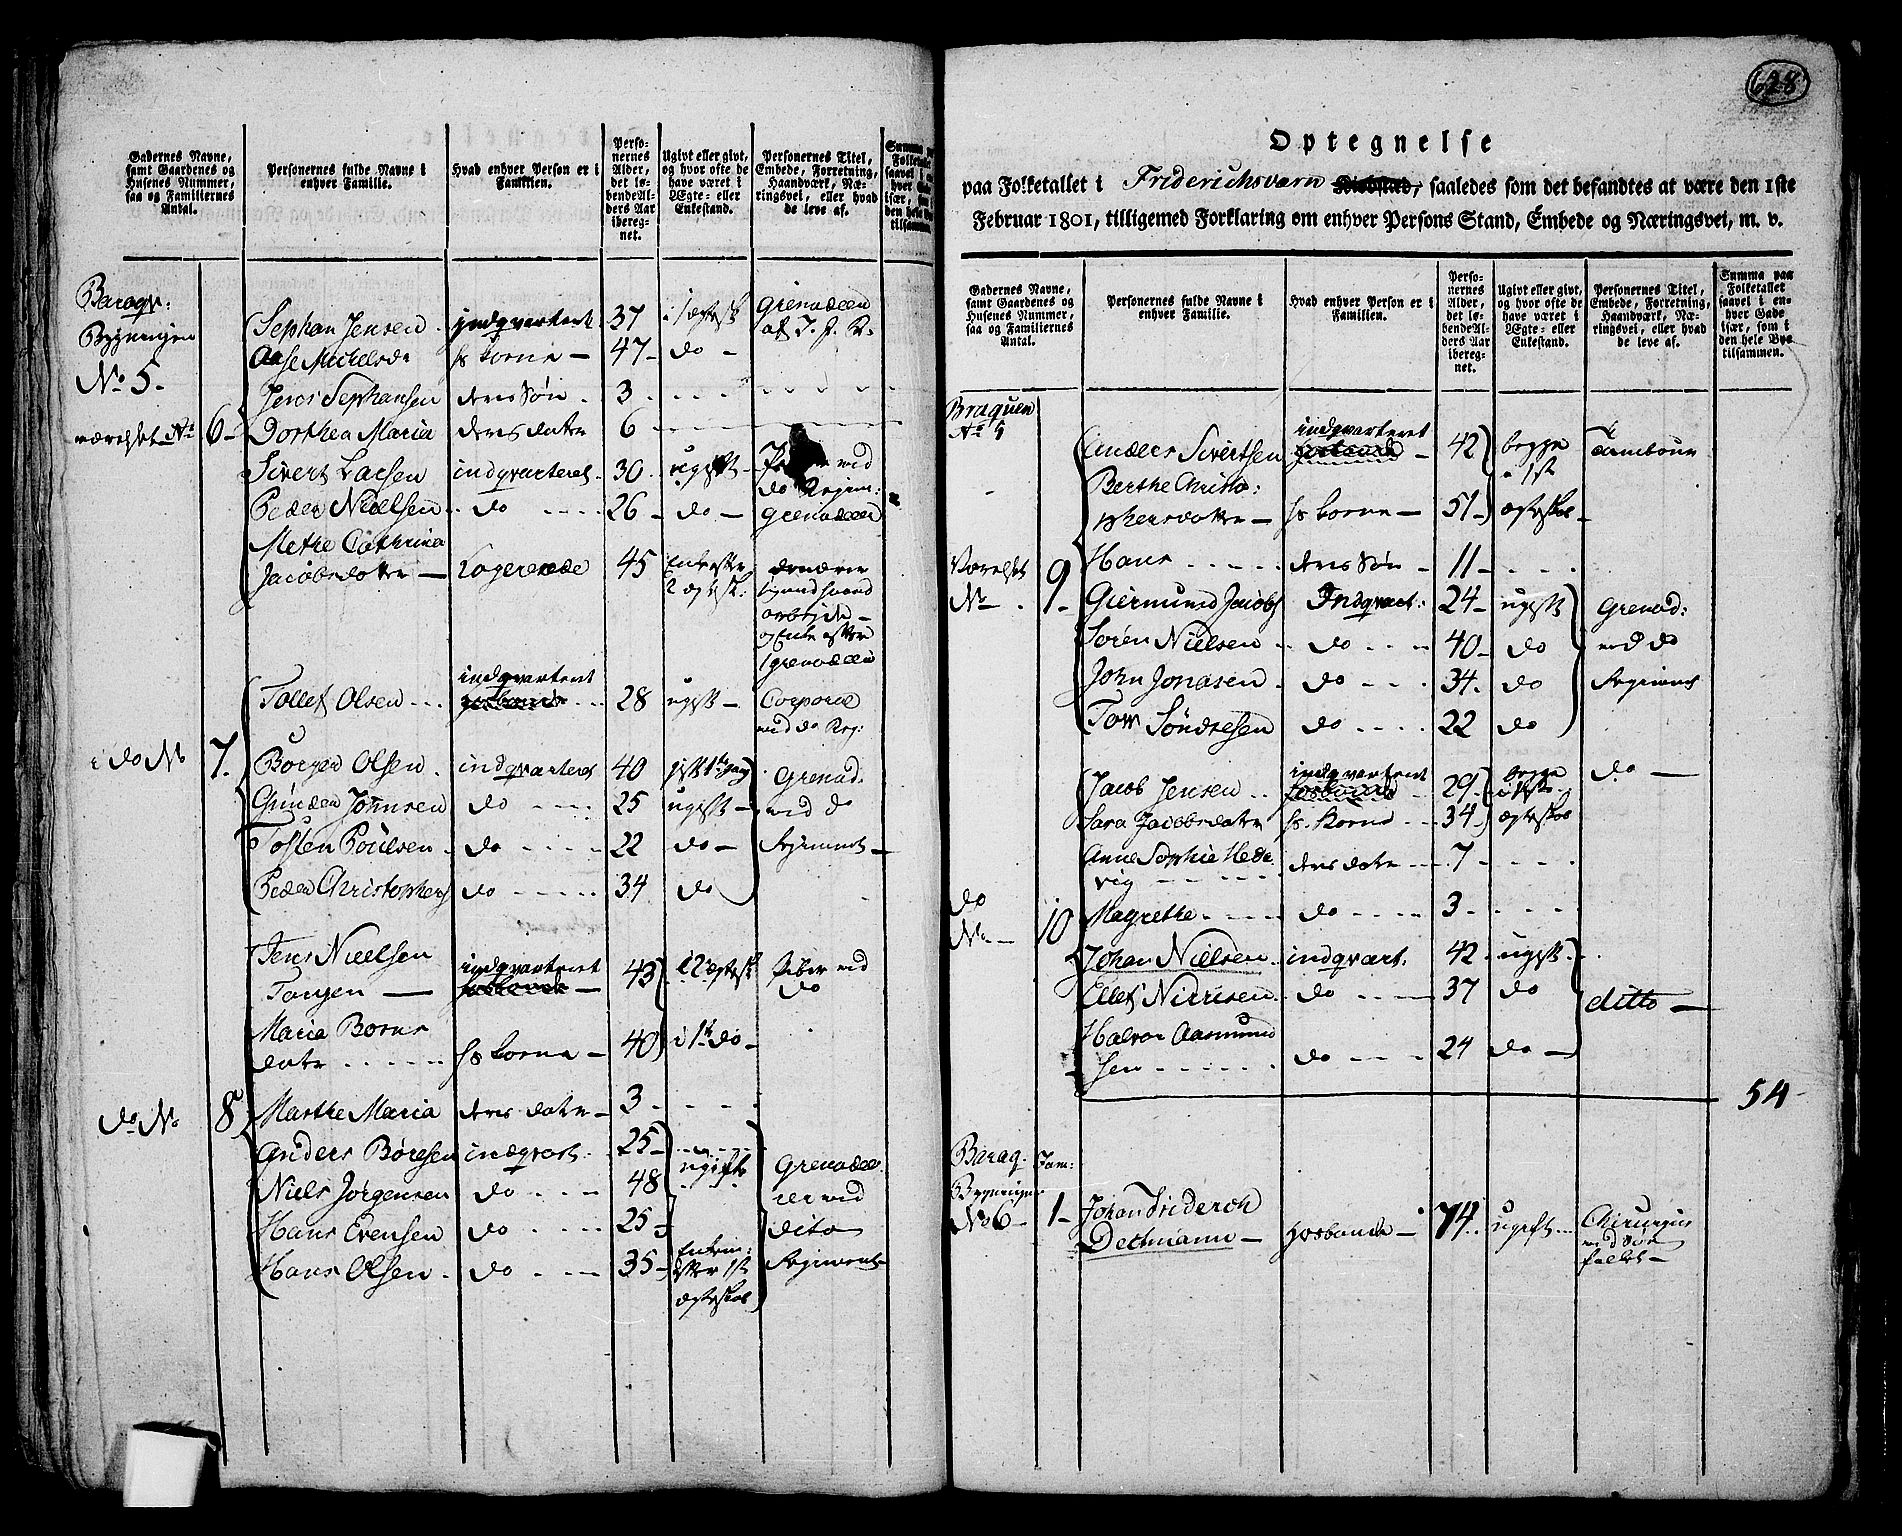 Gadernes Navne,
samt Gaardenes og
Husenes Nummer,
saa og Familiernes
Antal.
Personernes fulde Navne i
enhver Familie.
Hvad enhver Person er i
Familien.
Perso-
nernes
Alder,
det lø-
bende Al-
ders Aar
iberegt-
net.
Ugivt eller givt,
og hvor ofte de
have været i
Ægte- eller
Enkestand.
Personernes Titel,
Embede, Forretning,
Haandværk, Næ-
ringsvei, eller hvad
de leve af.
Baraqv:
Bygningen
No 5.
Sephan Jensen indqvarteret 37 i 1 ægtesk Grenadeer
Aase Michelsdr hs kone 47 do
Jens Sephansen deres Søn 3
værelset No 6 Dorthea Maria deres dater 6
Sivert Larsen indqvarteret 30 ugift
Peder Nielsen do 26 do Grenadeer
Methe Cathrina
Jacobsdatter Logerende 45
Tollef Olsen indqvarteret 28 ugift Corporal
ved do Reg:
do No 7. Börger Olsen indqvarteret 40 Grenad:
Gunder Johnsen do 25 ugift ved do
Tosten Poulsen do 22 do Regiment
Peder Christophers do 34 do
Jens Nielsen
Tangen indqvarteret 43 i 2 ægtesk Piber ved
do
Maria Börns
datr hs kone 40 i 1t do
do No 8 Marthe Maria deres datr 3
Anders Böresen indqvart 25
ugift
Niels Jörgensen do 48 Grenadee
rer ved
Hans Evensen do 25 dito
Hans Olsen do 35 Regiment
1st
ægteskab
628
Optegnelse
paa Folketallet i Friderichsværn Kiøbstad, saaledes som det befandtes at være den 1ste
Februar 1801, tilligemed Forklaring om enhver Persons Stand, Embede og Næringsvei, m. v.
Gadernes Navne,
samt Gaardenes og
Husenes Nummer,
saa og Familiernes
Antal.
Personernes fulde Navne i
enhver Familie.
Hvad enhver Person er i
Familien.
Perso-
nernes
Alder,
det lø-
bende Al-
ders Aar
ibereg-
net.
Ugivt eller givt,
og hvor ofte de
have været i
Ægte- eller
Enkestand.
Personernes Titel,
Embede, Forretning,
Haandværk, Næ-
ringsvei, eller hvad
de leve af.
Summa paa
Folketallet
saavel i en-
hver Gade
især, som i
den hele Bye
tilsammen.
Braquen
No 5
Anders Sivertsen indqvarteret 42 begge Tambour
i 1st
Berthe Christo:
phersdatter hs kone 51 ægteskab
Hans deres Søn 11
Værelset
No 9 Giermund Jacobs Indqvart: 24 ugift Grenad:
Sören Nielsen do 40 do ved do
John Jonasen do 34 do Regiment
Tov Söndresen do 22 do
Jacob Jensen indqvarteret 29 begge do
Sara Jacobsdater hs. Kone 34 ægteskab
Anne Sophie Hede
vig deres datr 7
do
No 10 Magrethe do 3
Johan Nielsen indqvart. 42 ugift
Ellef Nirrisen do 37 do ditto
Halvor Aasmund
sen do 24 do
54
Baraq Fam:
Bygningen
No 6 1 Johan Friderich
Dethmann Hosbonde 74 ugift Chirurgus
ved Söe